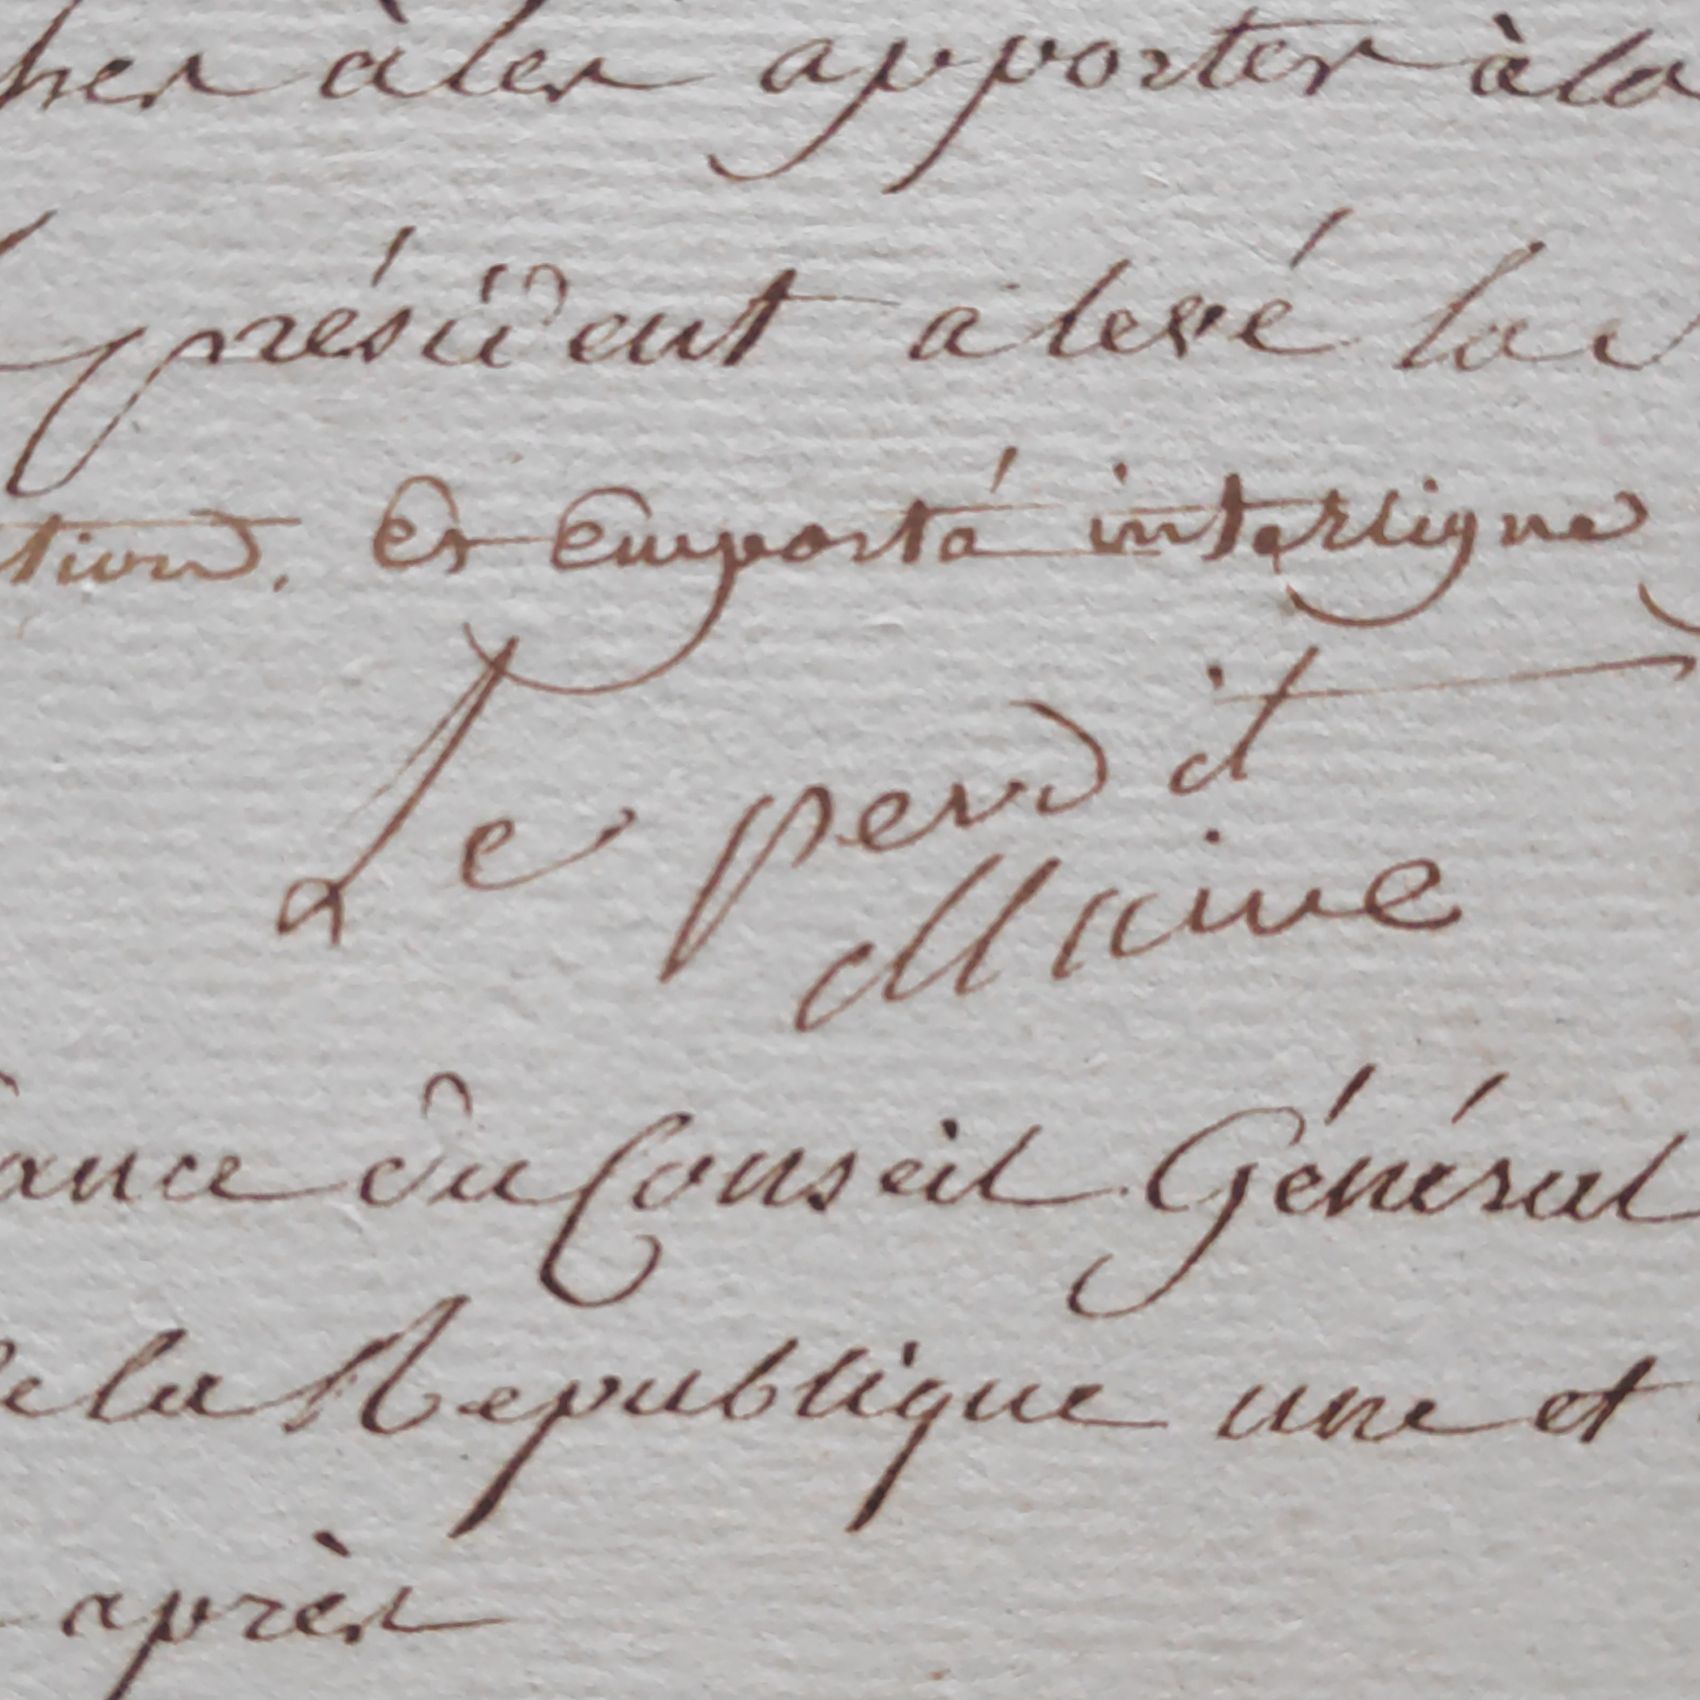 à les apporter à la
président a levé la
et emporté interligne
Le perdit
Maire
du Conseil Général
la Republique une et
après